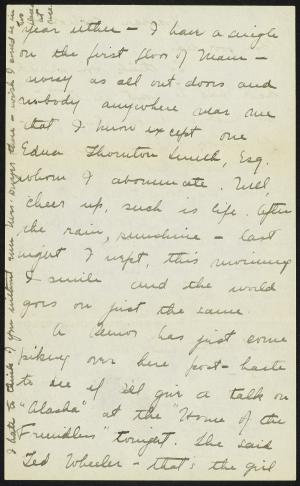 year either – I have a single
on the first floor of Main –
noisy as all out doors and
nobody anywhere near me
that I know except one
Edna Thornton Smith, Esq.
whom I abominate. Well,
cheer up, such is life. After
the rain, sunshine – last
night I wept, this morning
I smile and the world
goes on just the same.
A senior has just come
piking over here post-haste
to see if I'll give a talk on
"Alaska" at the "Home of the
Friendless" tonight. She said
Ted Wheeler – that's the girl
I hate to think of you without